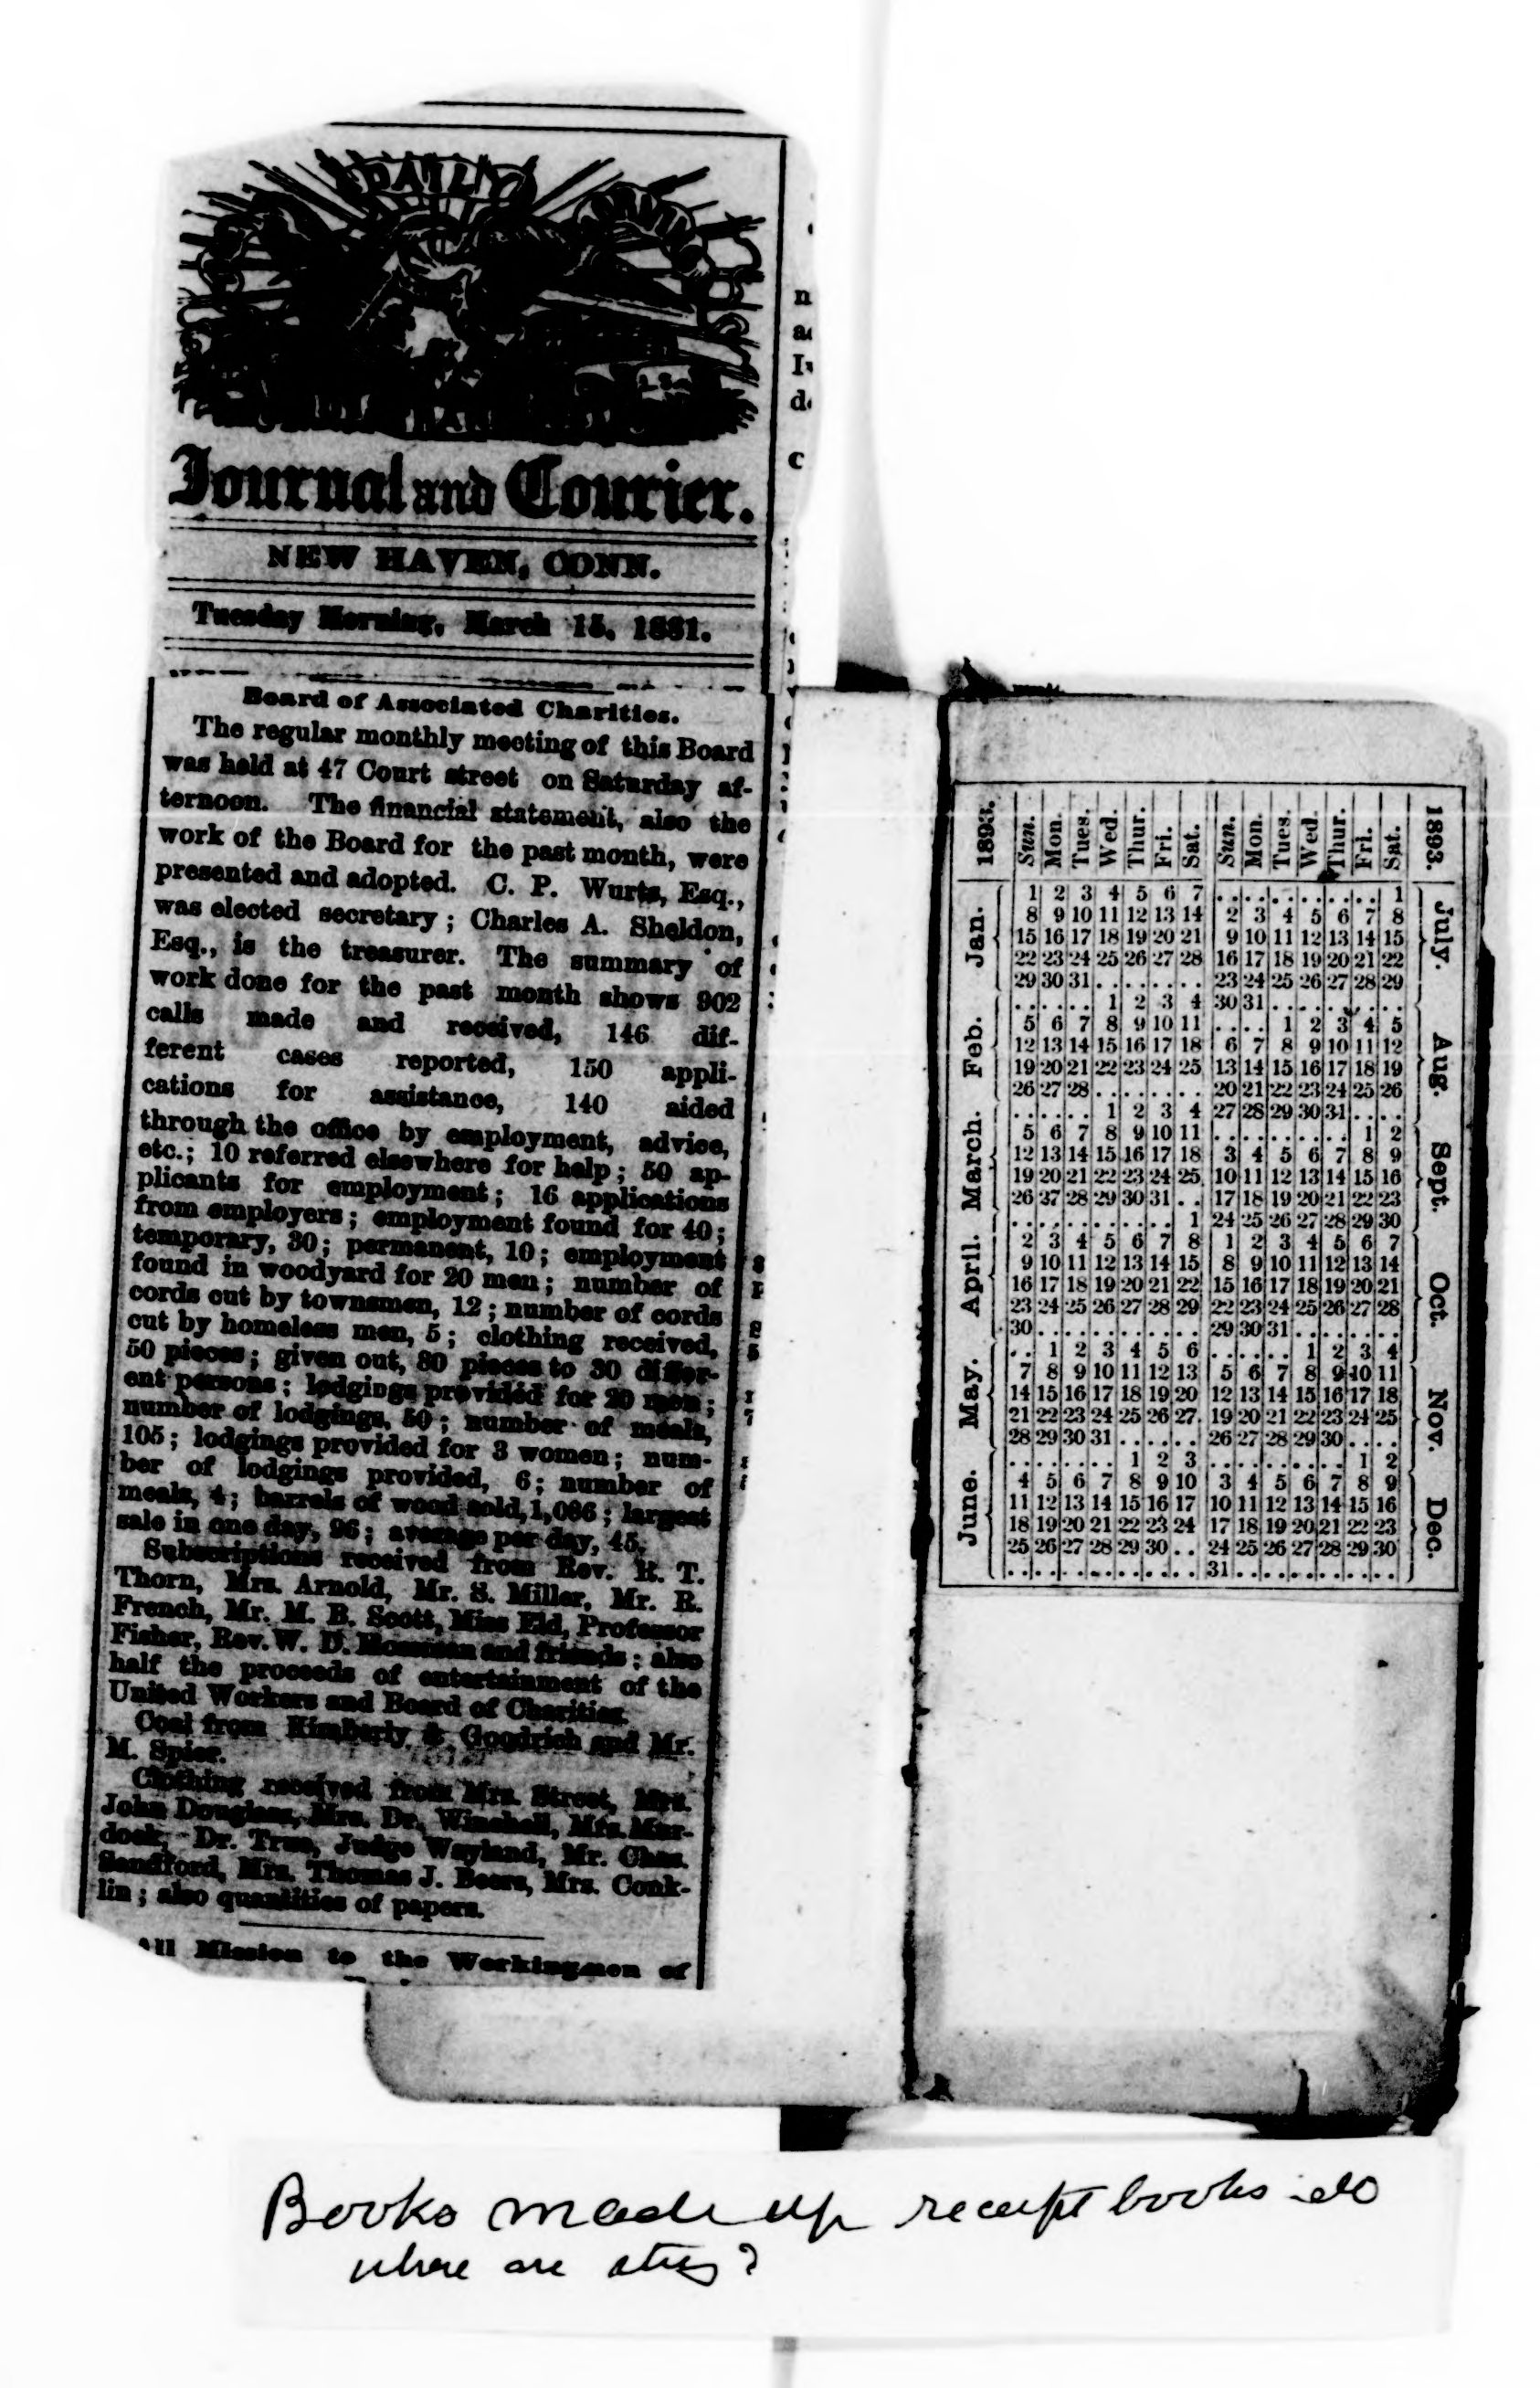 DAILY
Journal and Courier.
NEW HAVEN, CONN.
Tuesday Morning, March 15, 1881.
Board of Associated Charities.
The regular monthly meeting of this Board
was held at 47 Court street on Saturday af-
ternoon. The financial statement, also the
work of the Board for the past month, were
presented and adopted. C. P. Wurts, Esq.,
was elected secretary; Charles A. Sheldon,
Esq., is the treasurer. The summary of
work done for the past month shows 902
calls made and received, 146 dif-
ferent cases reported, 150 appli-
cations for assistance, 140 aided
through the office by employment, advice,
etc.; 10 referred elsewhere for help; 50 ap-
plicants for employment; 16 applications
from employers; employment found for 40;
temporary, 30; permanent, 10; employment
found in woodyard for 20 men; number of
cords cut by townsmen, 12; number of cords
cut by homeless men, 5; clothing received,
50 pieces; given out, 80 pieces to 30 differ-
ent persons; lodgings provided for 20 men;
number of lodgings, 50; number of meals,
105; lodgings provided for 3 women; num-
ber of lodgings provided, 6; number of
meals, 4; barrels of wood sold, 1,086; largest
sale in one day, 96; average per day, 45.
Subscriptions received from Rev. R. T.
Thorn, Mrs. Arnold, Mr. S. Miller, Mr. R.
French, Mr. M. B. Scott, Miss Eld, Professor
Fisher, Rev. W. D. and friends; also
half the proceeds of entertainment of the
United Workers and Board of Charities.
Coal from Kimberly & Goodrich and Mr.
M. Spier.
Clothing received from Mrs. Street, Mrs.
John Douglass, Mrs. Dr. Winchell, Mrs. Mur-
dock, Dr. True, Judge Wayland, Mr. Chas.
Sandford, Mrs. Thomas J. Beers, Mrs. Conk-
lin; also quantities of papers.
All Mission to the Workingmen of
1893. Sun. Mon. Tues. Wed. Thur. Fri. Sat. Sun. Mon. Tues. Wed. Thur. Fri. Sat. 1893.
Jan. July.
1 2 3 4 5 6 7 .. .. .. .. .. .. 1
8 9 10 11 12 13 14 2 3 4 5 6 7 8
15 16 17 18 19 20 21 9 10 11 12 13 14 15
22 23 24 25 26 27 28 16 17 18 19 20 21 22
29 30 31 .. .. .. .. 23 24 25 26 27 28 29
Feb. Aug.
.. .. .. 1 2 3 4 30 31 .. .. .. .. ..
5 6 7 8 9 10 11 .. .. 1 2 3 4 5
12 13 14 15 16 17 18 6 7 8 9 10 11 12
19 20 21 22 23 24 25 13 14 15 16 17 18 19
26 27 28 .. .. .. .. 20 21 22 23 24 25 26
March. Sept.
.. .. .. 1 2 3 4 27 28 29 30 31 .. ..
5 6 7 8 9 10 11 .. .. .. .. .. 1 2
12 13 14 15 16 17 18 3 4 5 6 7 8 9
19 20 21 22 23 24 25 10 11 12 13 14 15 16
26 27 28 29 30 31 .. 17 18 19 20 21 22 23
April. Oct.
.. .. .. .. .. .. 1 24 25 26 27 28 29 30
2 3 4 5 6 7 8 1 2 3 4 5 6 7
9 10 11 12 13 14 15 8 9 10 11 12 13 14
16 17 18 19 20 21 22 15 16 17 18 19 20 21
23 24 25 26 27 28 29 22 23 24 25 26 27 28
30 .. .. .. .. .. .. 29 30 31 .. .. .. ..
May. Nov.
.. 1 2 3 4 5 6 .. .. .. 1 2 3 4
7 8 9 10 11 12 13 5 6 7 8 9 10 11
14 15 16 17 18 19 20 12 13 14 15 16 17 18
21 22 23 24 25 26 27 19 20 21 22 23 24 25
28 29 30 31 .. .. .. 26 27 28 29 30 .. ..
June. Dec.
.. .. .. .. 1 2 3 .. .. .. .. .. 1 2
4 5 6 7 8 9 10 3 4 5 6 7 8 9
11 12 13 14 15 16 17 10 11 12 13 14 15 16
18 19 20 21 22 23 24 17 18 19 20 21 22 23
25 26 27 28 29 30 .. 24 25 26 27 28 29 30
.. .. .. .. .. .. .. 31 .. .. .. .. .. ..
Books made up receipt books do
where are they?